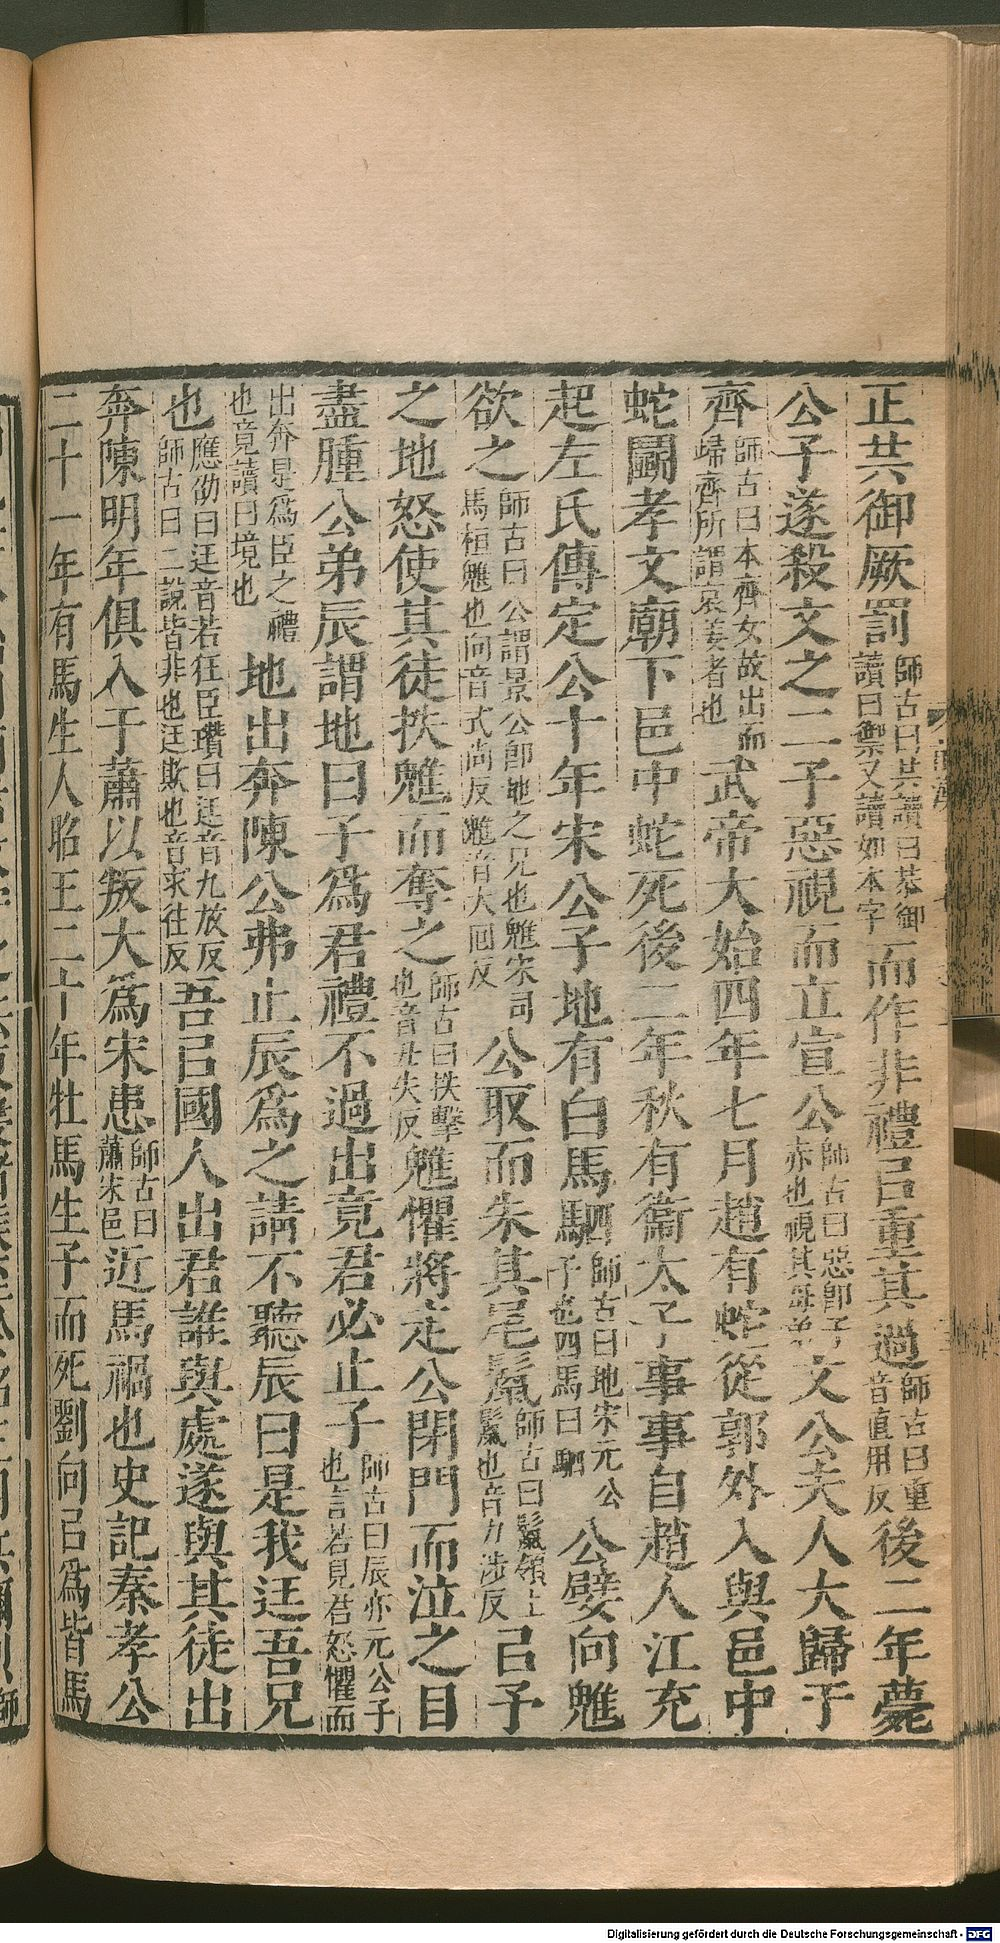 正共御厥罰師古曰共讀曰恭御讀曰禦又讀如本字而作非禮㠯重其過師古曰重音直用反後二年薨
公子遂殺文之二子惡視而立宣公師古曰惡即子赤也視其母弟文公夫人大歸于
齊師古曰本齊女故出而歸齊所謂哀姜者也武帝大始四年七月趙有蛇從郭外入與邑中
蛇鬭孝文廟下邑中蛇死後二年秋有衞太子事事自趙人江充
起左氏傳定公十年宋公子地有白馬駟師古曰地宋元公子也四馬曰駟公嬖向魋
欲之師古曰公謂景公卽地之兄也魋宋司馬桓魋也向音式尚反魋音大回反公取而朱其尾鬣師古曰鬣領上鬣也音力涉反㠯予
之地怒使其徒抶魋而奪之師古曰抶擊也音丑失反魋懼將走公閉門而泣之目
盡腫公弟辰謂地曰子爲君禮不過出竟君必止子師古曰辰亦元公子也言若見君怒懼而
出奔是爲臣之禮也竟讀曰境也地出奔陳公弗止辰爲之請不聽辰曰是我迋吾兄
也應劭曰迋音若狂臣瓚曰迋音九放反師古曰二說皆非也迋欺也音求往反吾㠯國人出君誰與處遂與其徒出
奔陳明年俱入于蕭以叛大爲宋患師古曰蕭宋邑近馬禍也史記秦孝公
二十一年有馬生人昭王二十年牡馬生子而死劉向㠯爲皆馬
Digitalisierung gefördert durch die Deutsche Forschungsgemeinschaft - DFG